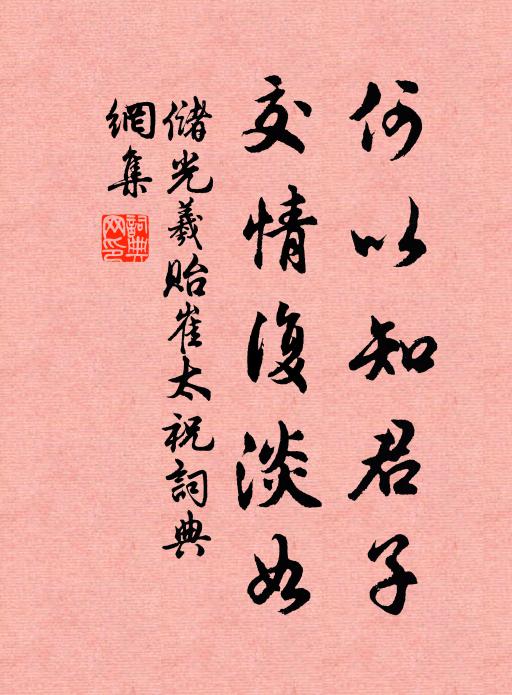 何以知君子
交情復淡如
儲光羲貽崔太祝詞典
網集
詞典網印